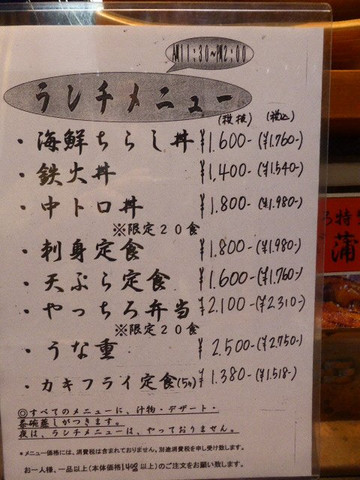 AM11:30~PM2:00
ランチメニュー
(税抜) (税込)
・海鮮ちらし丼 ¥1,600-(¥1,760-)
・鉄火丼 ¥1,400-(¥1,540-)
・中トロ丼 ¥1,800-(¥1,980-)
※限定20食
・刺身定食 ¥1,800-(¥1,980-)
・天ぷら定食 ¥1,600-(¥1,760-)
・やっちろ弁当 ¥2,100-(¥2,310-)
※限定20食
・うな重 ¥2,500-(¥2,750-)
・カキフライ定食(5ヶ) ¥1,380-(¥1,518-)
◎すべてのメニューに、汁物・デザート・
茶碗蒸しがつきます。
夜は、ランチメニューは、やっておりません。
※メニュー価格には、消費税は含まれておりません。別途消費税を申し受け致します。
お一人様、一品以上(本体価格1,400以上)のご注文をお願い致します。
特
蒲